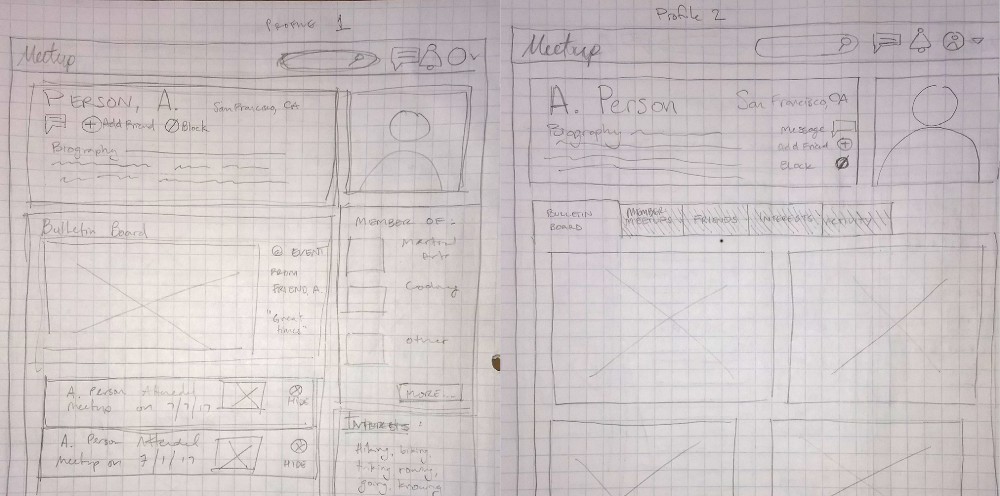 Profile 1
Meetup
PERSON, A.
San Francisco, CA
Add Friend
Block
Biography
Bulletin Board
@ EVENT
FROM
FRIEND, A.
"Great
times"
MEMBER OF:
Martial
Arts
Coding
other
MORE...
A. Person Attended
Meetup on 7/7/17
HIDE
A. Person Attended
Meetup on 7/1/17
HIDE
INTERESTS:
Hiking, biking,
going, knowing
Profile 2
Meetup
A. Person
San Francisco, CA
Biography
Message
Add Friend
Block
BULLETIN
BOARD
MEMBER
MEETUPS
FRIENDS
INTERESTS
ACTIVITY